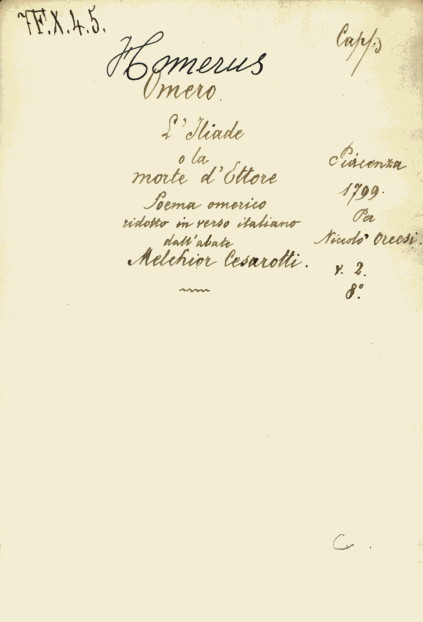 7F.X.4.5.
Capp.
Homerus
Omero.
L'Iliade
o la
morte d'Ettore
Poema omerico
ridotto in verso italiano
dall'abate
Melchior Cesarotti.
Piacenza
1799.
Per
Niccolò Orcesi.
v. 2.
8°.
C.